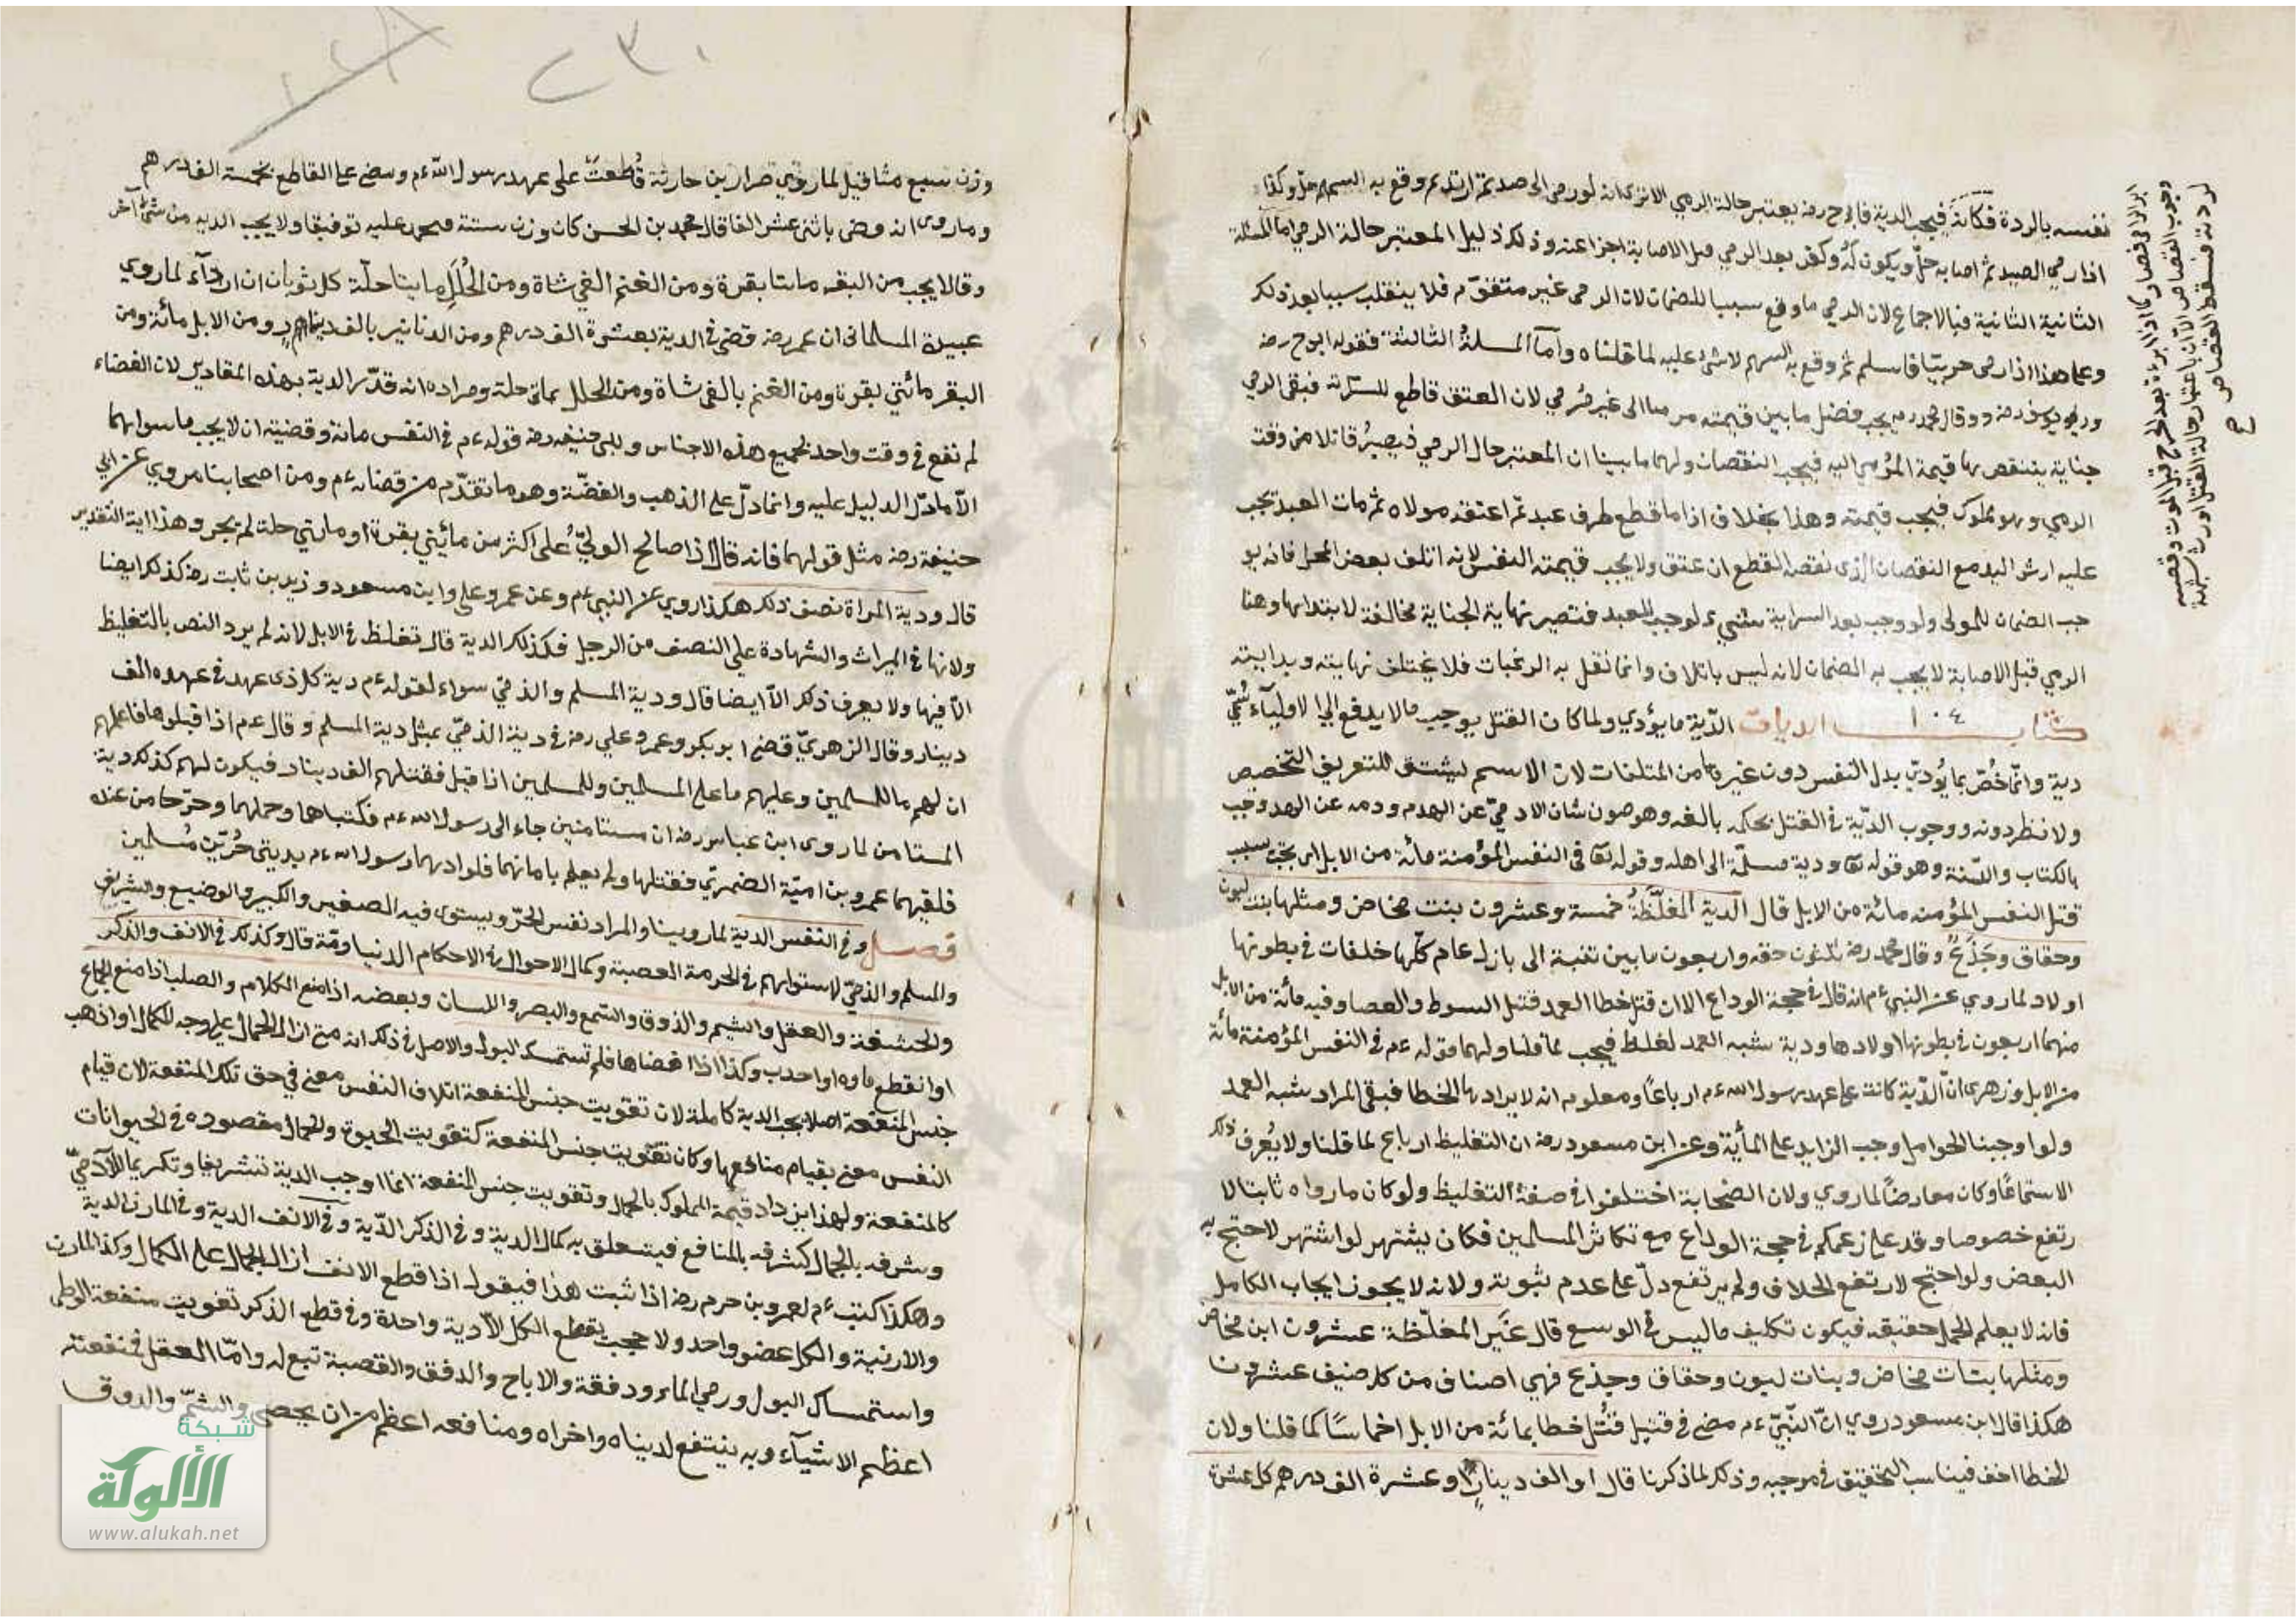 نفسه بالردة فكانه فيجب الدية فابوح رضه يعتبر حالة الرمي الا ترى انه لو رمى الى صيد ثم ارتد ثم وقع به السهم حل وكذا
اذا رمى الصيد ثم اصابه حل ويكون له وكفر بعد الرمي قبل الاصابة اجزا عنه وذلك دليل المعتبر حالة الرمي اما المسئلة
الثانية الثانية فبالاجماع لان الرمي ما وقع سببا للضمان لان الرمى غير متقوم فلا ينقلب سببا بعد ذلك
وعلى هذا اذا رمى حربيا فاسلم ثم وقع به السهم لا شئ عليه لما قلناه واما المسئلة الثالثة فقوله ابوح رضه
وابو يوسف رضه وقال محمد رحمه يجب فضل ما بين قيمته مرميا الى غير مرمي لان العتق قاطع للسراية فبقى الرمي
جناية ينتقص بها قيمة المرمي اليه فيجب النقصان ولهما ما بينا ان المعتبر حال الرمي فيصير قاتلا من وقت
الرمي وهو مملوك فيجب قيمته وهذا بخلاف اذا ما قطع طرف عبد ثم اعتقه مولاه ثم مات العبد تجب
عليه ارش اليد مع النقصان الذى نقصه القطع ان عتق ولا يجب قيمته النفس لانه اتلف بعض المحل فانه يو
جب الضمان للمولى ولو وجب بعد السراية شيء لوجب للعبد فتصير نهاية الجناية مخالفة لابتدائها وهنا
الرمي قبل الاصابة لا يجب به الضمان لانه ليس باتلاف وانما تقل به الرغبات فلا يختلف نهايته وبدايته
كتاب ١٠٤ الديات الدية ما يؤدي ولما كان القتل يوجب مالا يدفع الى الاولياء سمي
دية وانما خص بما يؤدي بدل النفس دون غيرها من المتلفات لان الاسم ليشتق للتعريف التخصيص
ولا نظر دونه ووجوب الدية في القتل بحكم بالغه وهو صون شان الادمي عن الهدم ودمه عن الهدر وجب
بالكتاب والسنة وهو قوله تعا ودية مسلمة الى اهله وقوله تعا فى النفس المؤمنة مائة من الابل اى تجب بسبب
قتل النفس المؤمنه مائة من الابل قال الدية المغلظة خمسة وعشرون بنت مخاض ومثلها بنت لبون
وحقاق وجذع وقال محمد رضه ثلثون حقه واربعون ما بين ثنية الى بازل عام كلها خلفات في بطونها
اولاد لما روي عن النبي ءم انه قال في حجة الوداع الا ان قتل خطا العمد قتل السوط والعصا وفيه مائة من الابل
منها اربعون في بطونها اولادها ودية شبه العمد لغلظ فيجب لما قلنا ولهما قوله ءم في النفس المؤمنة مائة
من الابل وزهرى ان الدية كانت على عهد رسول الله ءم ارباعا ومعلوم انه لا يراد بها الخطا فبقى المراد شبه العمد
ولو اوجبنا الحوامل وجب الزايد على المأية وعن ابن مسعود رضه ان التغليظ ارباع لما قلنا ولا يعرف ذلك
الا ستماعا وكان معارضا لما روي ولان الصحابة اختلفوا في صفة التغليظ ولو كان ما رواه ثابتا لا
رتفع خصوصا وقد على زعمكم في حجة الوداع مع تكاثر المسلمين فكان يشتهر لو اشتهر لاحتج به
البعض ولو احتج لارتفع الخلاف ولم يرتفع دل على عدم ثبوته ولانه لا يجوز ايجاب الكامل
فانه لا يعلم الحمل حقيقه فيكون تكليف ما ليس في الوسع قال غير المغلظة عشرون ابن مخاض
ومثلها بنات مخاض وبنات لبون وحقاق وجذع فهي اصناف من كل صنيف عشرون
هكذا قال ابن مسعود روي ان النبي ءم قضى في قتيل قتل خطا بمائة من الابل اخماسا كما قلنا ولان
الخطا اخف فيناسب التخفيف في موجبه وذلك لما ذكرنا قال او الف دينار او عشرة الف درهم كل عشرة
ابرا لى فصار كما اذا ابراه بعد الجرح قبل الموت وقضيه
وجوب القصاص الا ان باعتبار حالة القتل اورث شبهة
لردته فسقط القصاص
صح
٢٣٠
وزن سبع مثاقيل لما روي ضرار بن حارثة قطعت على عهد رسول الله ءم وقضى على القاطع بخمسة الف درهم
وما روى انه قضى باثنى عشر الفا قال محمد بن الحسن كان وزن ستة فحمد عليه توفيقا ولا يجب الديه من شئ آخر
وقالا يجب من البقر مايتا بقرة ومن الغنم الفي شاة ومن الحلل مايتا حلة كل ثوبان ان ازار رداء لما روي
عبيدة السلمانى ان عمر رضه قضى في الدية بعشرة الف درهم ومن الدنانير بالف دينار ومن الابل مائة ومن
البقر مائتي بقرة ومن الغنم بالفى شاة ومن الحلل بمائى حلة ومراده انه قدر الدية بهذه المقادير لان القضاء
لم تقع في وقت واحد بجميع هذه الاجناس ولابى حنيفه رضه قوله ءم في النفس مائة وقضيته ان لا يجب ما سوابهما
الا ما دل الدليل عليه وانما دل على الذهب والفضة وهو ما تقدم من قضائه ءم ومن اصحابنا من روي عن ابي
حنيفة رضه مثل قولهما فانه قال اذا صالح الولي على اكثر من مائيتي بقرة او مايتي حلة لم يجز وهذا اية التقدير
قال ودية المراة نصف ذلك هكذا روي عن النبي ءم وعن عمر وعلى وابن مسعود وزيد بن ثابت رضه كذلك ايضا
ولانها في الميراث والشهادة على النصف من الرجل فكذلك الدية قال تغلظ في الابل لانه لم يرد النص بالتغليظ
الا فيها ولا يعرف ذلك الا ايضا قال ودية المسلم والذمي سواء لقوله ءم دية كل ذى عهد في عهده الف
دينار وقال الزهري قضى ابو بكر وعمر وعلي رضه في دية الذمي بمثل دية المسلم وقال ءم اذا قبلوها فاعلمهم
ان لهم ما للمسلمين وعليهم ما على المسلمين وللمسلمين اذا قتل فقتلهم الف دينار فيكون لهم كذلك دية
المستامن لما روى ابن عباس رضه ان مستامنين جاء الى رسول الله ءم فكتباها وحملهما وخرجا من عنده
فلقيهما عمرو بن امية الضمري فقتلها ولم يعلم بامانهما فلوادهما رسول الله ءم بديتي حرين مسلمين
فصل وفى النفس الدية لما روينا والمراد نفس الحر ويستوى فيه الصغير والكبير والوضيع والشريف
والمسلم والذمي لاستوائهم في الحرمة العصبة وكمال الاحوال في الاحكام الدنياومة قال وكذلك في الانف والذكر
والحشفة والعقل والشم والذوق والسمع والبصر واللسان وبعضه اذا منع الكلام والصلب اذا منع الجماع
او انقطع ماوه او احدب وكذا اذا افضاها فلم تستمسك البول والاصل في ذلك انه متى ازال الجمال على وجه الكمال او اذهب
جنس المنفعة اصلا يجب الدية كاملة لان تفويت جنس المنفعة اتلاف النفس معنى في حق تلك المنفعة لان قيام
النفس معنى بقيام منافعها وكان تفويت جنس المنفعة كتفويت الحيوة والجمال مقصوده في الحيوانات
كالمنفعة ولهذا ازداد قيمة المملوك بالجمال وتفويت جنس المنفعة انما اوجب الدية تشريفا وتكريما للآدمي
وشرفه بالجمال كشرفه بالمنافع فيتعلق به كمال الدية وفى الذكر الدية وفى الانف الدية وفى المارن الدية
وهكذا كتب ءم لعمرو بن حزم رضه اذا ثبت هذا فيقول اذا قطع الانف ازال الجمال على الكمال وكذا المارن
والارنبة والكل عضو واحد ولا يجب بقطع الكل الا دية واحدة وفى قطع الذكر تفويت منفعة الوطى
واستمساك البول ورمي الماء ودفقه والاباح والدفق والقصبة تبع له واما العقل فمنفعته
اعظم الاشياء وبه ينتفع لديناه واخراه ومنافعه اعظم من ان يحصى والشم والذوق
شبكة
الألوكة
www.alukah.net